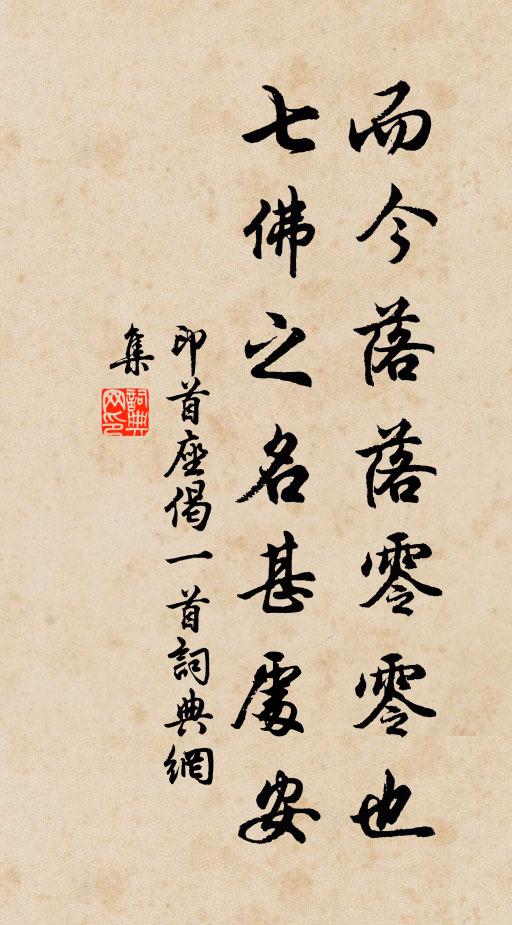 而今落落零零也
七佛之名甚處安
印首座偈一首詞典網
集
詞典网印